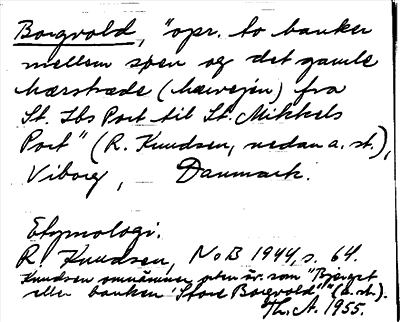 Borgvold, "opr. to banker
mellem søen og det gamle
hærstræde (hærvejen) fra
St. Ibs Port til St. Mikkels
Port" (R. Knudsen, nedan a. st.),
Viborg, Danmark.
Etymologi.
R. Knudsen, NoB 1944, s. 64.
Knudsen omnämner som "Bjerget
eller banken 'Store Borgvold'" (a. st.).
Th. A. 1955.